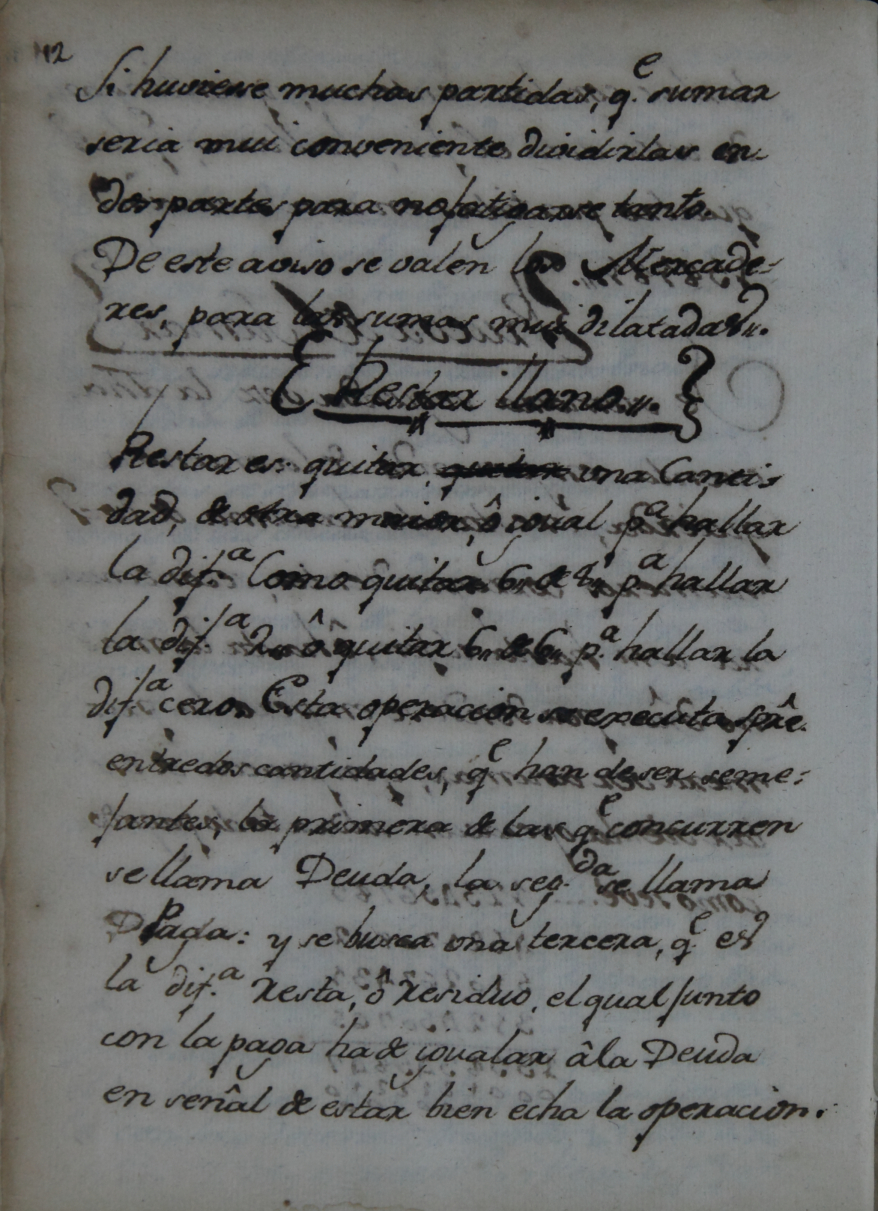 12
Si huviese muchas partidas, q.e sumar
seria mui conveniente dividirlas en
dos partes para no fatigarse tanto.
De este aviso se valen los Mercade=
res, para las sumas mui dilatadas.
Restar llano.
Restar es: quitar, quitar una Canti=
dad, de otra maior, ô igual, p.a hallar
la dif.a Como quitar 6,, de 8,, p.a hallar
la dif.a 2,, ô quitar 6,, de 6,, p.a hallar la
dif.a cero. Esta operacion se executa sprê.
entre dos cantidades, q.e han de ser seme=
jantes, la primera de las q.e concurren
se llama Deuda, la seg.da se llama
Paga: y se busca una tercera, q.e es
la dif.a resta, ô residuo, el qual junto
con la paga ha de igualar â la Deuda
en señal de estar bien echa la operacion.